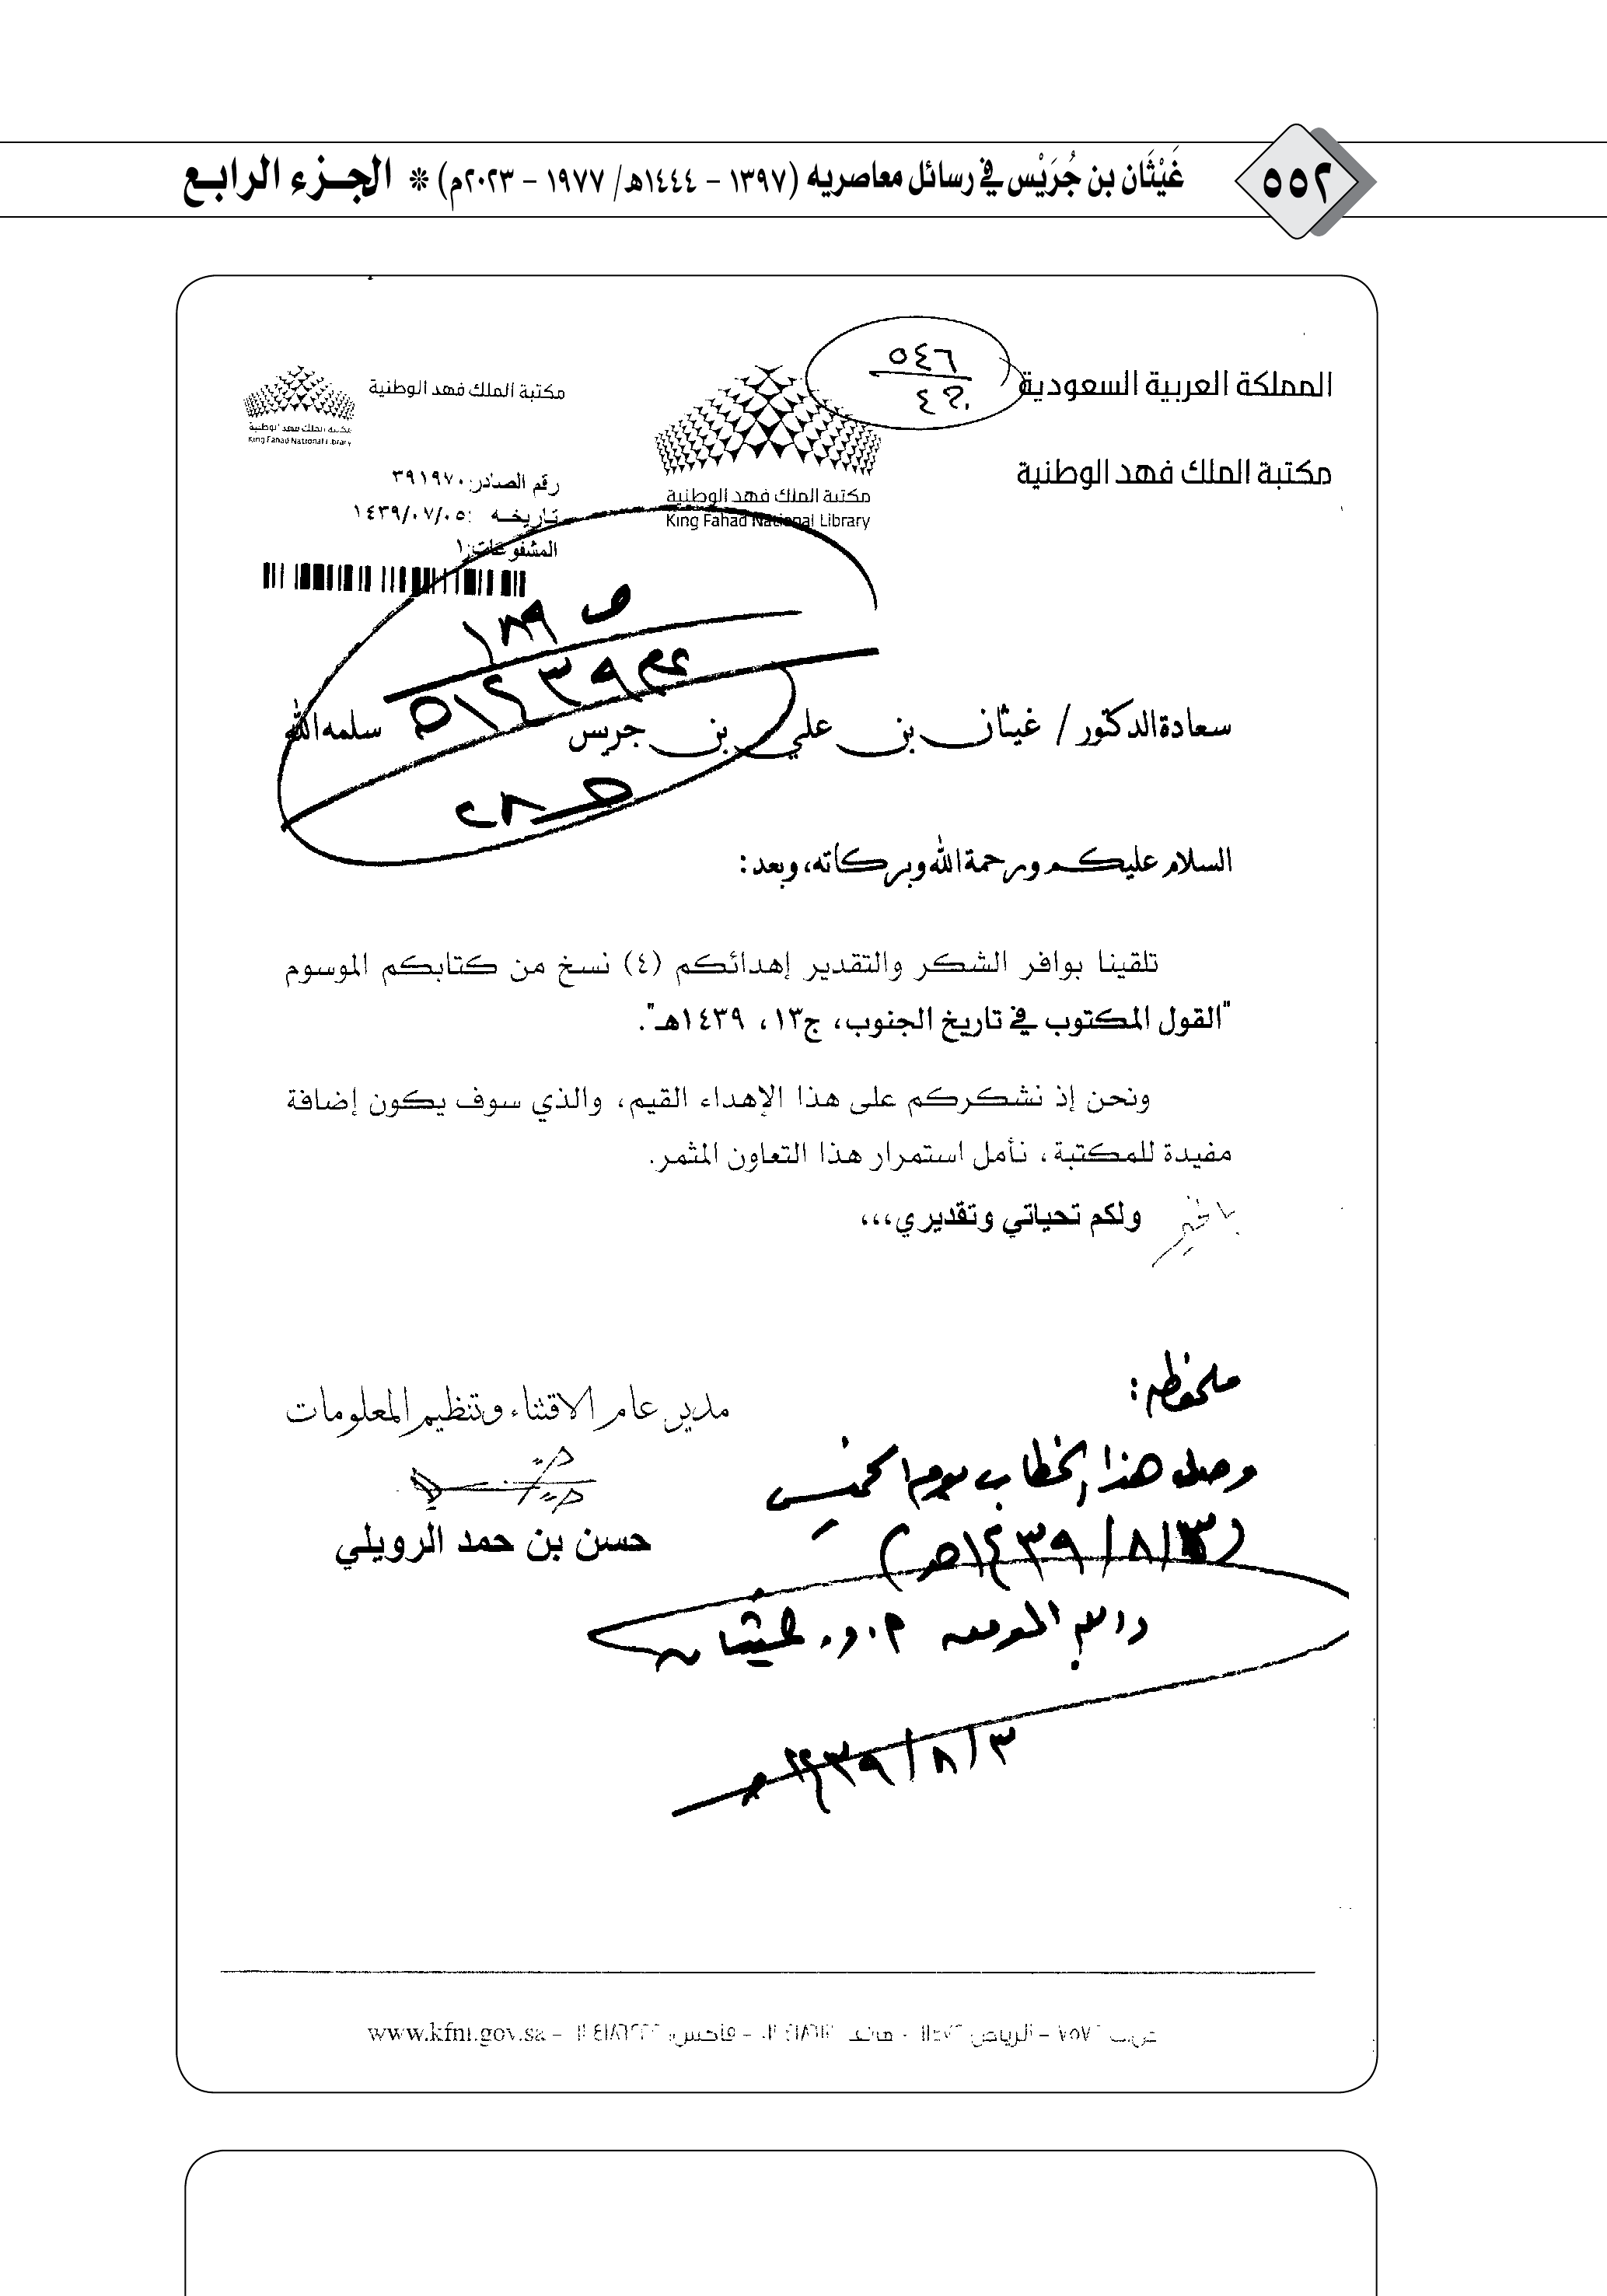 ٥٥٢
غَيْثَان بن جُرَيْس في رسائل معاصريه (١٣٩٧ – ١٤٤٤هـ/ ١٩٧٧ – ٢٠٢٣م) * الجزء الرابع
المملكة العربية السعودية
مكتبة الملك فهد الوطنية
٥٤٦
مكتبة الملك فهد الوطنية
King Fahad National Library
مكتبة الملك فهد الوطنية
مكتبة الملك فهد الوطنية
King Fahad National Library
رقم الصادر: ٣٩١٩٧٠
تاريخه : ١٤٣٩/٠٧/٠٥
المشفوعات: ١
ص ١٨٩
سعادة الدكتور / غيثان بن علي بن جريس سلمه الله
السلام عليكم ورحمة الله وبركاته، وبعد:
تلقينا بوافر الشكر والتقدير إهدائكم (٤) نسخ من كتابكم الموسوم
"القول المكتوب في تاريخ الجنوب، ج١٣، ١٤٣٩هـ".
ونحن إذ نشكركم على هذا الإهداء القيم، والذي سوف يكون إضافة
مفيدة للمكتبة، نأمل استمرار هذا التعاون المثمر.
ولكم تحياتي وتقديري،،،
مدير عام الاقتناء وتنظيم المعلومات
حسن بن حمد الرويلي
ملحوظة:
وصل هذا الخطاب يوم الخميس
(٣/٨/١٤٣٩هـ)
غيثان
٣/٨/١٤٣٩هـ
www.kfnl.gov.sa